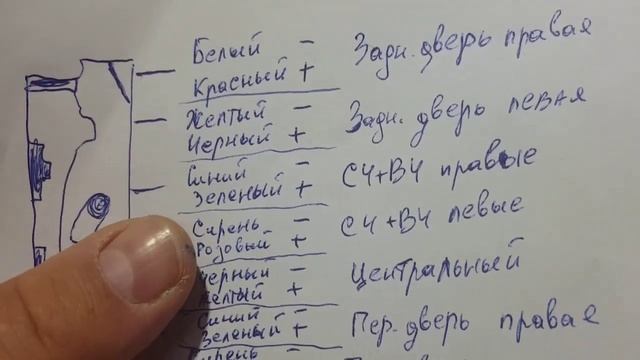 Белый − Задн. дверь правая
Красный +
Желтый − Задн. дверь левая
Черный +
Синий − СЧ+ВЧ правые
Зеленый +
Сирень − СЧ+ВЧ левые
Розовый +
Черный − Центральный
Желтый +
Синий − Пер. дверь правая
Зеленый +
Сирень −